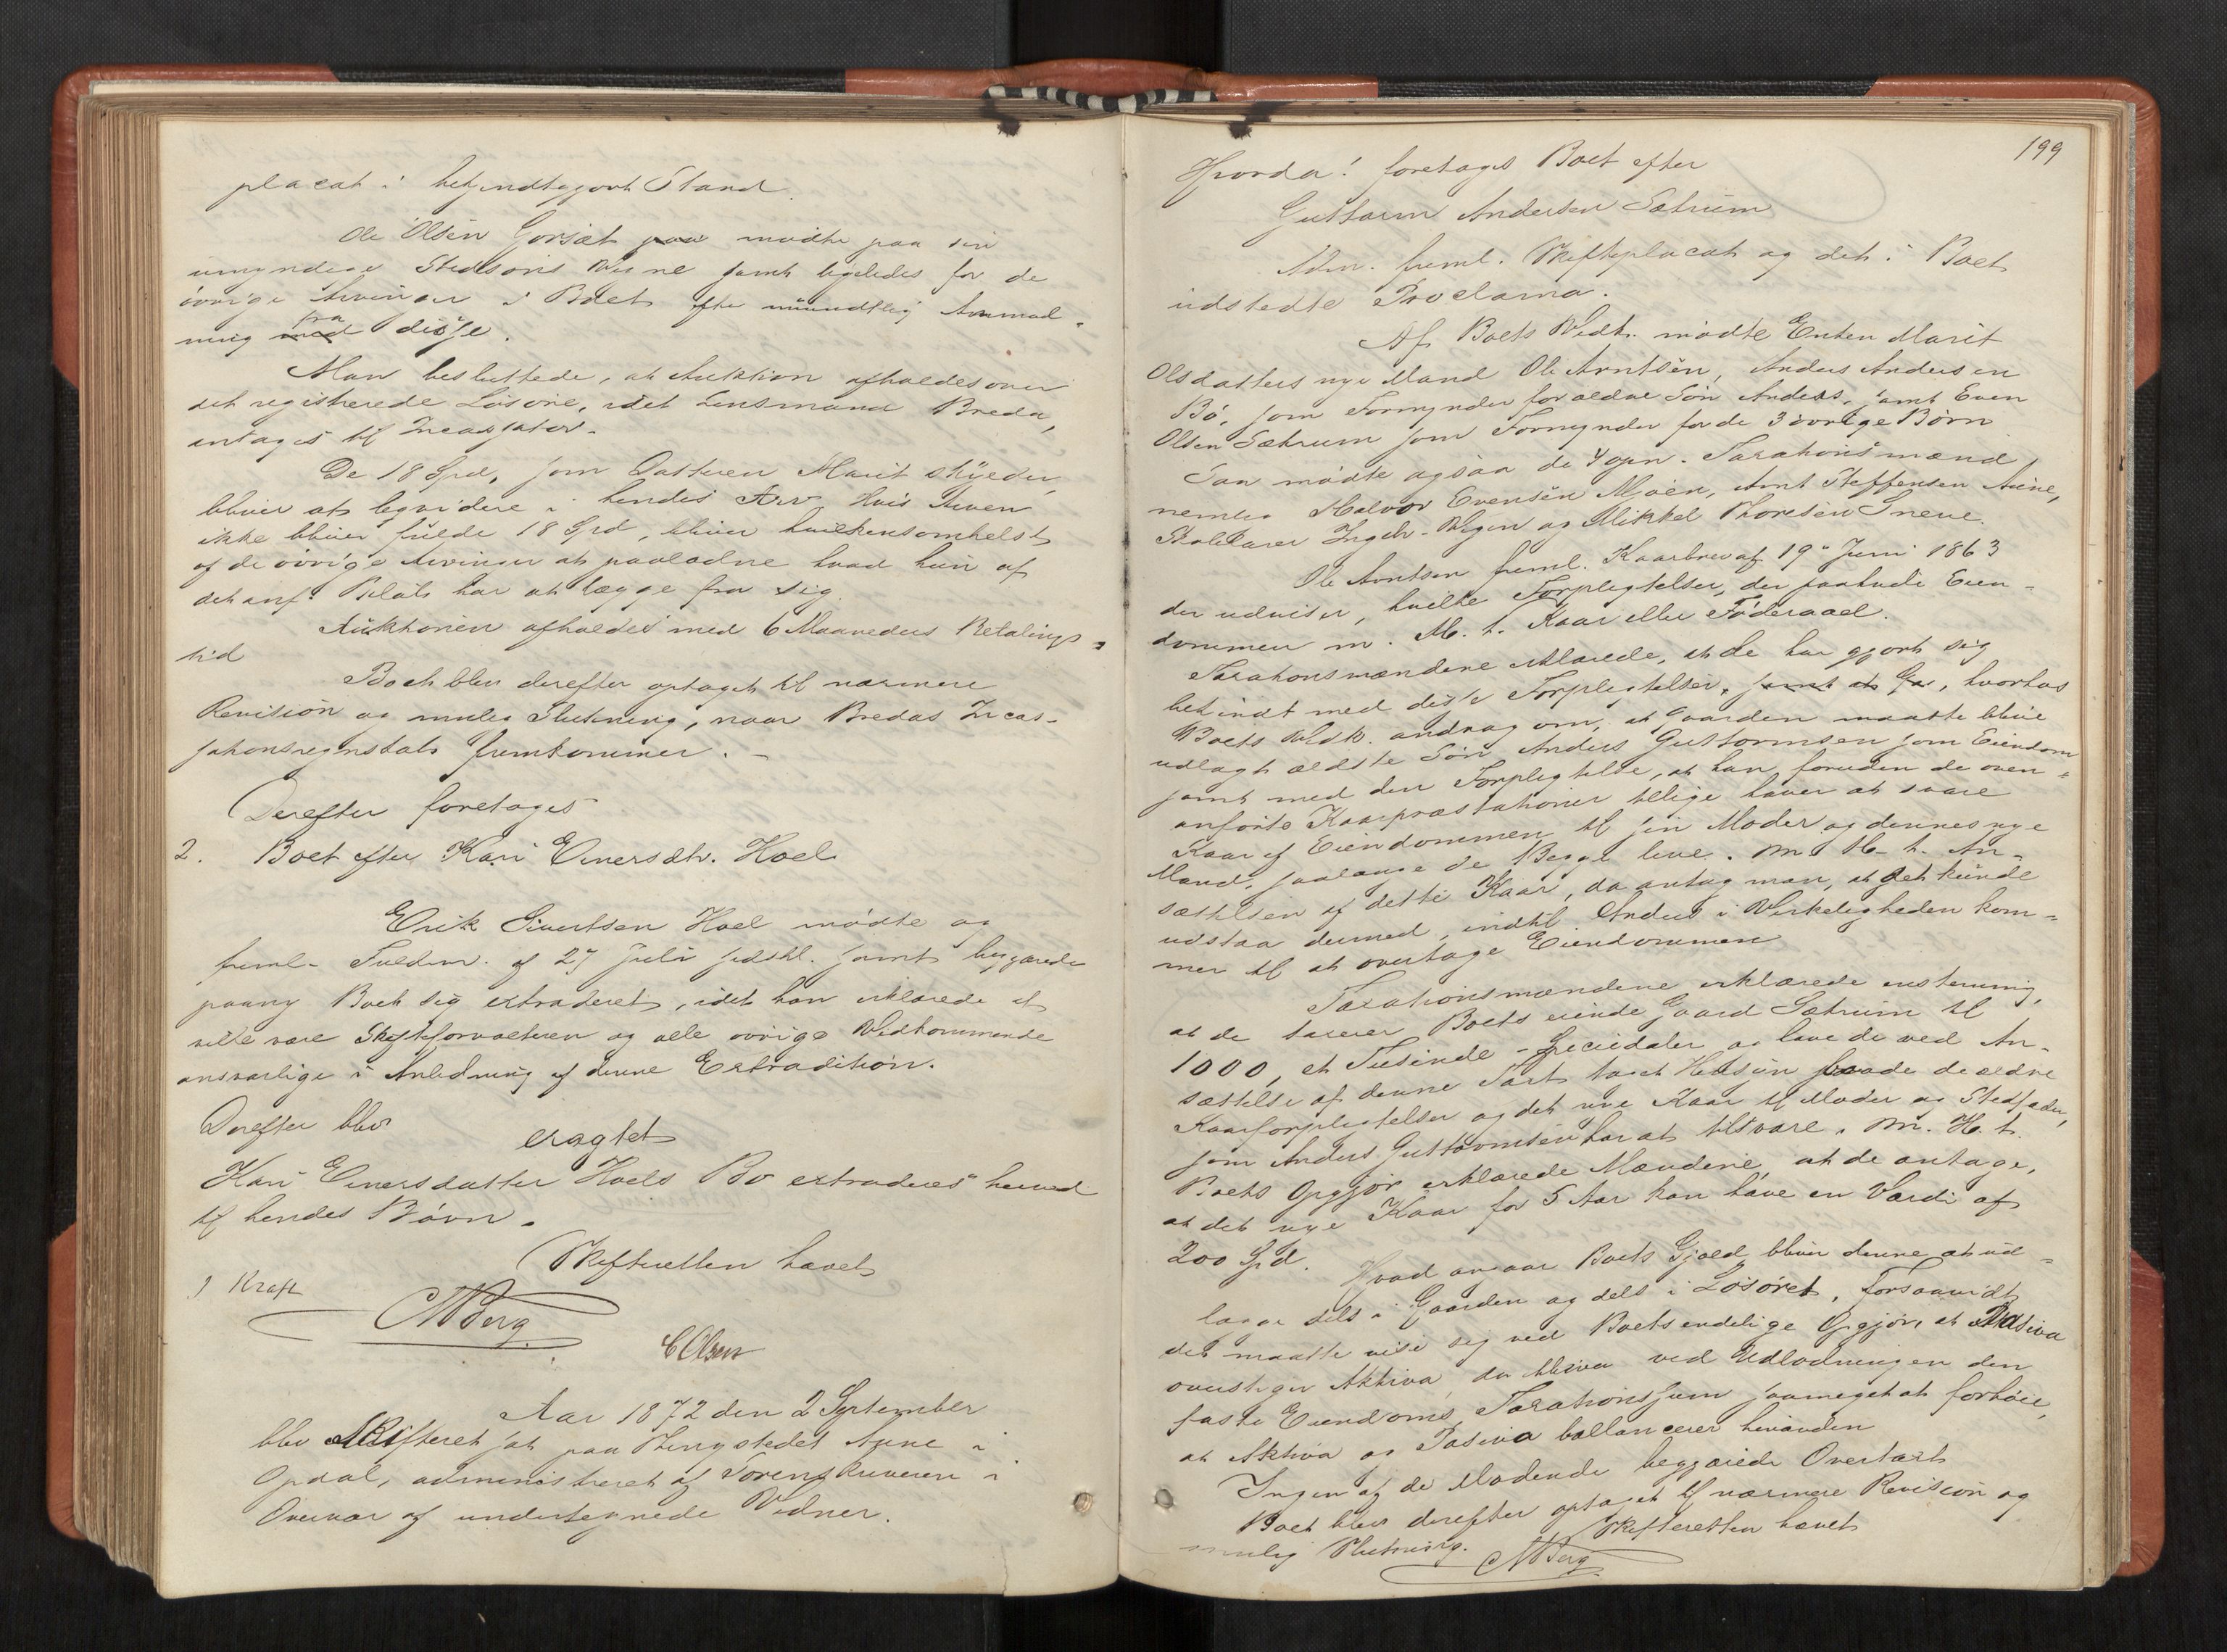 placat i bekjendtgjort Stand.
Ole Olsen Gorsæt paa mødte paa sin
umyndige Stedsøns Vegne samt ligeledes for de
øvrige Arvinger i Boet efter mundtlig Anmod-
ning med fra disse.
Man besluttede, at Auktion afholdes over
det registrerede Løsøre, idet Lensmand Breda,
antages til Incassator.
De 18 Spd, som Datteren Marit skylder,
bliver at liqvidere i hendes Arv. Hvis Arven
ikke bliver fulde 18 Spd, bliver hvilkensomhelst
af de øvrige Arvinger at paalodne hvad hun af
det anf. Beløb har at lægge fra sig.
Auktionen afholdes med 6 Maaneders Betalings-
tid
Boet blev derefter optaget til nærmere
Revision og mulig Slutning, naar Bredas Incas-
sationsregnskab fremkommer. -
Derefter foretoges
2. Boet efter Kari Einersdtr. Hoel
Erik Sivertsen Hoel mødte og
freml. Fuldm. af 27 Juli sidstl. samt begjærede
paany Boet sig extraderet, idet han erklærede at
ville være Skifteforvalteren og alle øvrige Vedkommende
ansvarlige i Anledning af denne Extradition.
Derefter blev
eragtet
Kari Einersdatter Hoels Bo extraderes herved
til hendes Børn.
Skifteretten hævet
J Kraft
MBerg
COlsen
Aar 1872 den 2 September
blev Skifteret sat paa Thingstedet Aune i
Opdal, administreret af Sorenskriveren i
Overvær af undertegnede Vidner.
199
Hvorda! foretages Boet efter
Guttorm Andersen Sætrum
Adm. freml. Skifteplacat og det i Boet
udstedte Proclama.
Af Boets Vedk. mødte Enken Marit
Olsdatters nye Mand Ole Arntsen, Anders Andersen
Bø, som Formynder for ældre Søn Anders, samt Even
Olsen Sætrum som Formynder for de 3 øvrige Børn
Saa mødte ogsaa de 4 opn. Taxationsmænd,
nemlig Halvor Evensen Mjøen, Arnt Steffensen Aune,
Skolelærer Ingebr. Vigen og Mikkel Thoresen Sneve.
Ole Arntsen freml. Kaarbrev af 19de Juni 1863
der udviser, hvilke Forpligtelser, der paahvile Eien-
dommen m. H. t. Kaar eller Føderaad.
Taxationsmændene erklærede, at de har gjort sig
bekjendt med disse Forpligtelser, samt at Ga, hvorhos
Boets Vedk. androg om, at Gaarden maatte blive
udlagt ældste Søn Anders Guttormsen som Eiendom
samt med den Forpligtelse, at han, foruden de oven-
anførte Kaarpræstationer tillige haver at svare
Kaar af Eiendommen til sin Moder og dennes nye
Mand, saalænge de Begge leve. M. H. t. An-
sættelsen af dette Kaar, da antog man, at det kunde
udstaa dermed, indtil Anders i Virkeligheden kom-
mer til at overtage Eiendommen
Taxationsmændene erklærede enstemmig,
at de taxerer Boets eiende Gaard Sætrum til
1000, et Tusinde - Speciedaler og have de ved An-
sættelse af denne Taxt taget Hensyn paade de ældre
Kaarforpligtelser og det nye Kaar til Moder og Stedfader,
som Anders Guttormsen har at tilsvare. M. H. t.
Boets Opgjør erklærede Mændene, at de antage,
at det nye Kaar for 5 Aar kan have en Værdi af
200 Spd.
Hvad angaar Boets Gjæld bliver denne at ud-
lægge dels i Gaarden og dels i Løsøret, forsaavidt
det maatte vise sig ved Boets endelige Opgjør, at Pasiva
overstiger Aktiva, da bliver ved Udlodningen den
faste Eiendoms Taxationssum saameget at forhøie,
at Aktiva og Pasiva ballancerer hinanden
Ingen af de Mødende begjærede Overtaxt
Boet blev derefter optaget til nærmere Revision og
mulig Slutning.
Skifteretten hævet
MBerg